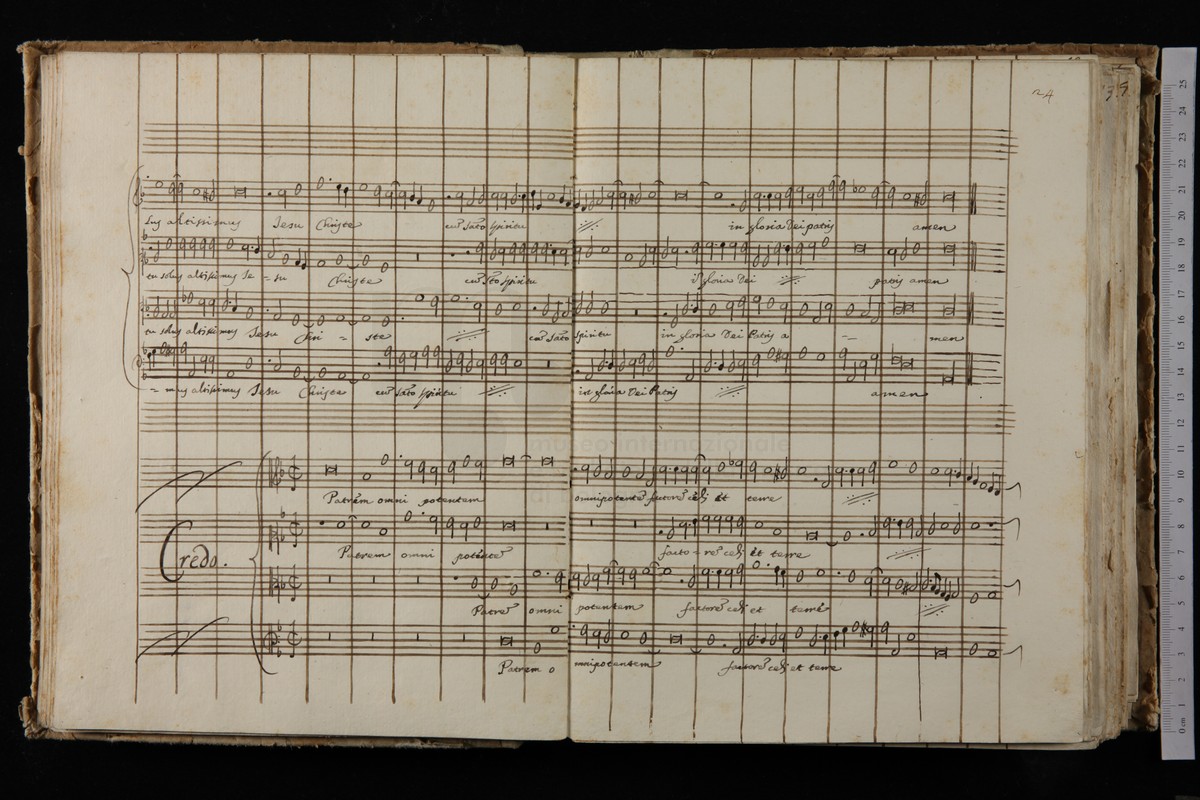 24
tus altissimus Jesu Christe cũ sãto spiritu in gloria Dei patris amen
tu solus altissimus Je - su Christe cũ sto spiritu ĩ gloria Dei patris amen
tu solus altissimus Jesu Chri - ste cũ sãto spiritu in gloria Dei Patris a - men
= mus altissimus Jesu Christe cũ sãto spiritu in gloria Dei Patris amen
museo internazionale
Patrem omni potentem omnipotentẽ factorẽ celi et terre
Credo.
Patrem omni potẽtẽ facto - rẽ celi et terre
Patrẽ omni potentem factorẽ celi et terre
Patrem o mnipotentem factorẽ celi et terre
0 cm 1 2 3 4 5 6 7 8 9 10 11 12 13 14 15 16 17 18 19 20 21 22 23 24 25